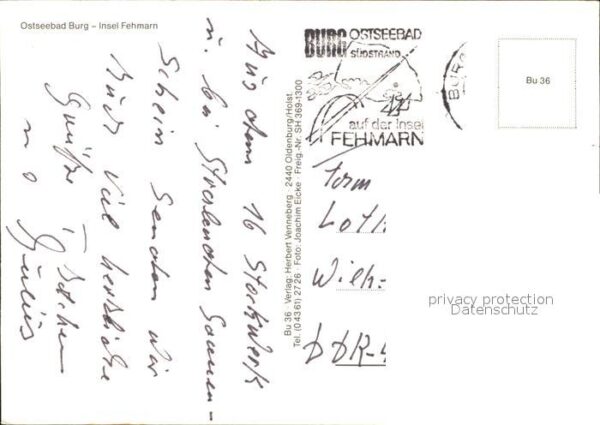 Ostseebad Burg – Insel Fehmarn
Aus dem 16 Stockwerk
u. bei strahlenden Sonnen-
schein senden wir
Euch viel herzliche
Grüße
u
Julius
Bu 36 · Verlag: Herbert Venneberg · 2440 Oldenburg/Holst.
Tel. (0 43 61) 27 26 · Foto: Joachim Eicke · Freig.-Nr. SH 369-1300
BURG OSTSEEBAD
SÜDSTRAND
auf der Insel
FEHMARN
BURG
Bu 36
Fam
Loth
Wilh-
DDR-4
privacy protection
Datenschutz